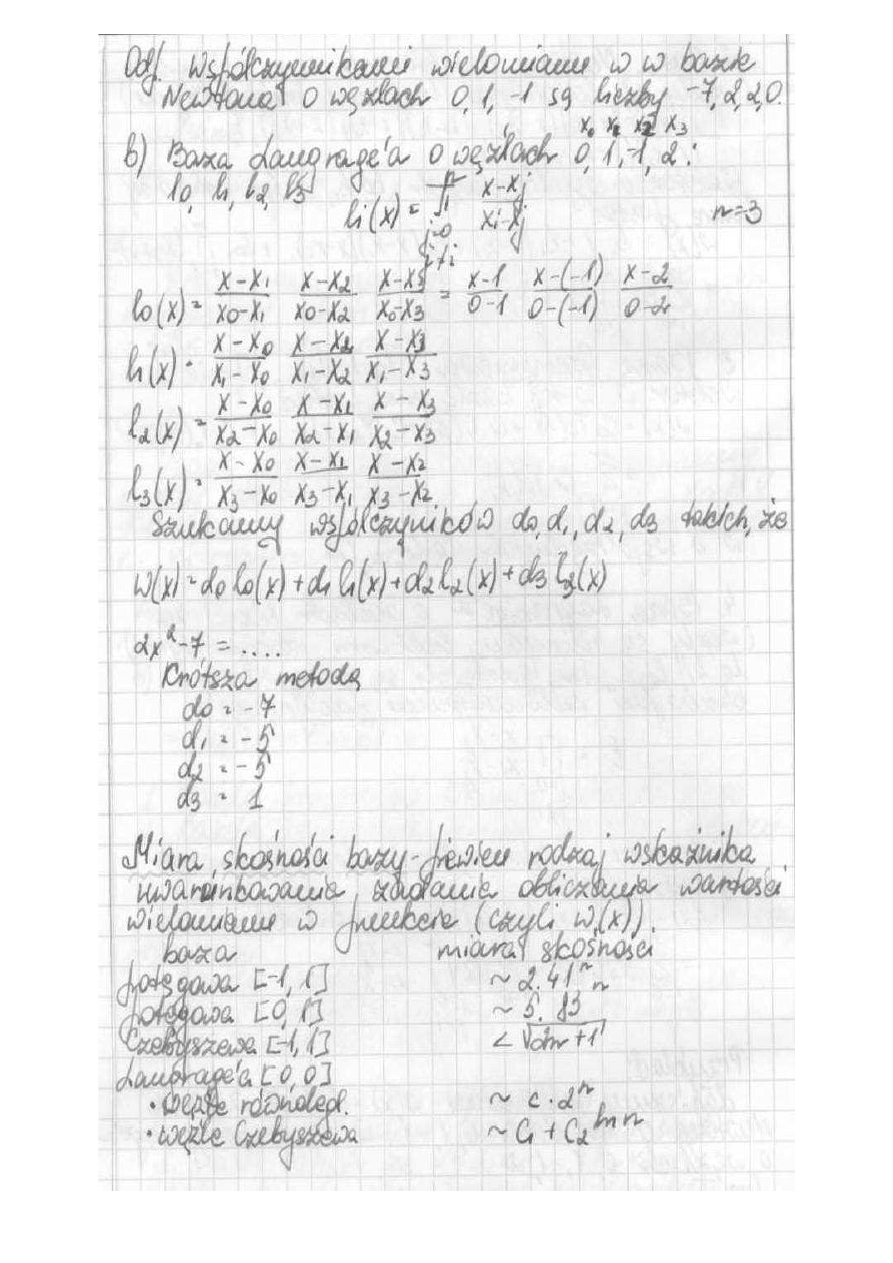 Odf. Współczynnikami wielomianu w w bazie
Newtona o węzłach 0, 1, -1 są liczby -7, 2, 2, 0.
x₀ x₁ x₂ x₃
b) Baza Laugrage'a o węzłach 0, 1, -1, 2 :
l₀, l₁, l₂, l₃
li(x) = ∏ⁿ j=0 j≠i (x-xj)/(xi-xj) n=3
l₀(x) = (x-x₁)/(x₀-x₁) (x-x₂)/(x₀-x₂) (x-x₃)/(x₀-x₃) = (x-1)/(0-1) (x-(-1))/(0-(-1)) (x-2)/(0-2)
l₁(x) = (x-x₀)/(x₁-x₀) (x-x₂)/(x₁-x₂) (x-x₃)/(x₁-x₃)
l₂(x) = (x-x₀)/(x₂-x₀) (x-x₁)/(x₂-x₁) (x-x₃)/(x₂-x₃)
l₃(x) = (x-x₀)/(x₃-x₀) (x-x₁)/(x₃-x₁) (x-x₂)/(x₃-x₂)
Szukamy współczyników d₀, d₁, d₂, d₃ takich, że
w(x) = d₀ l₀(x) + d₁ l₁(x) + d₂ l₂(x) + d₃ l₃(x)
2x² - 7 = ....
Krótsza metoda
d₀ = -7
d₁ = -5
d₂ = -5
d₃ = 1
Miara skośności bazy - pewien rodzaj wskaźnika
uwarunkowania zadania obliczania wartości
wielomianu w punkcie (czyli w(x)).
baza miara skośności
potęgowa [-1, 1] ~ 2.41ⁿ
potęgowa [0, 1] ~ 5.83ⁿ
Czebyszewa [-1, 1] < √(2n+1)
Laugrage'a [0, 0]
• węzłe równoległ. ~ c · 2ⁿ
• węzłe Czebyszewa ~ C₁ + C₂ ln n